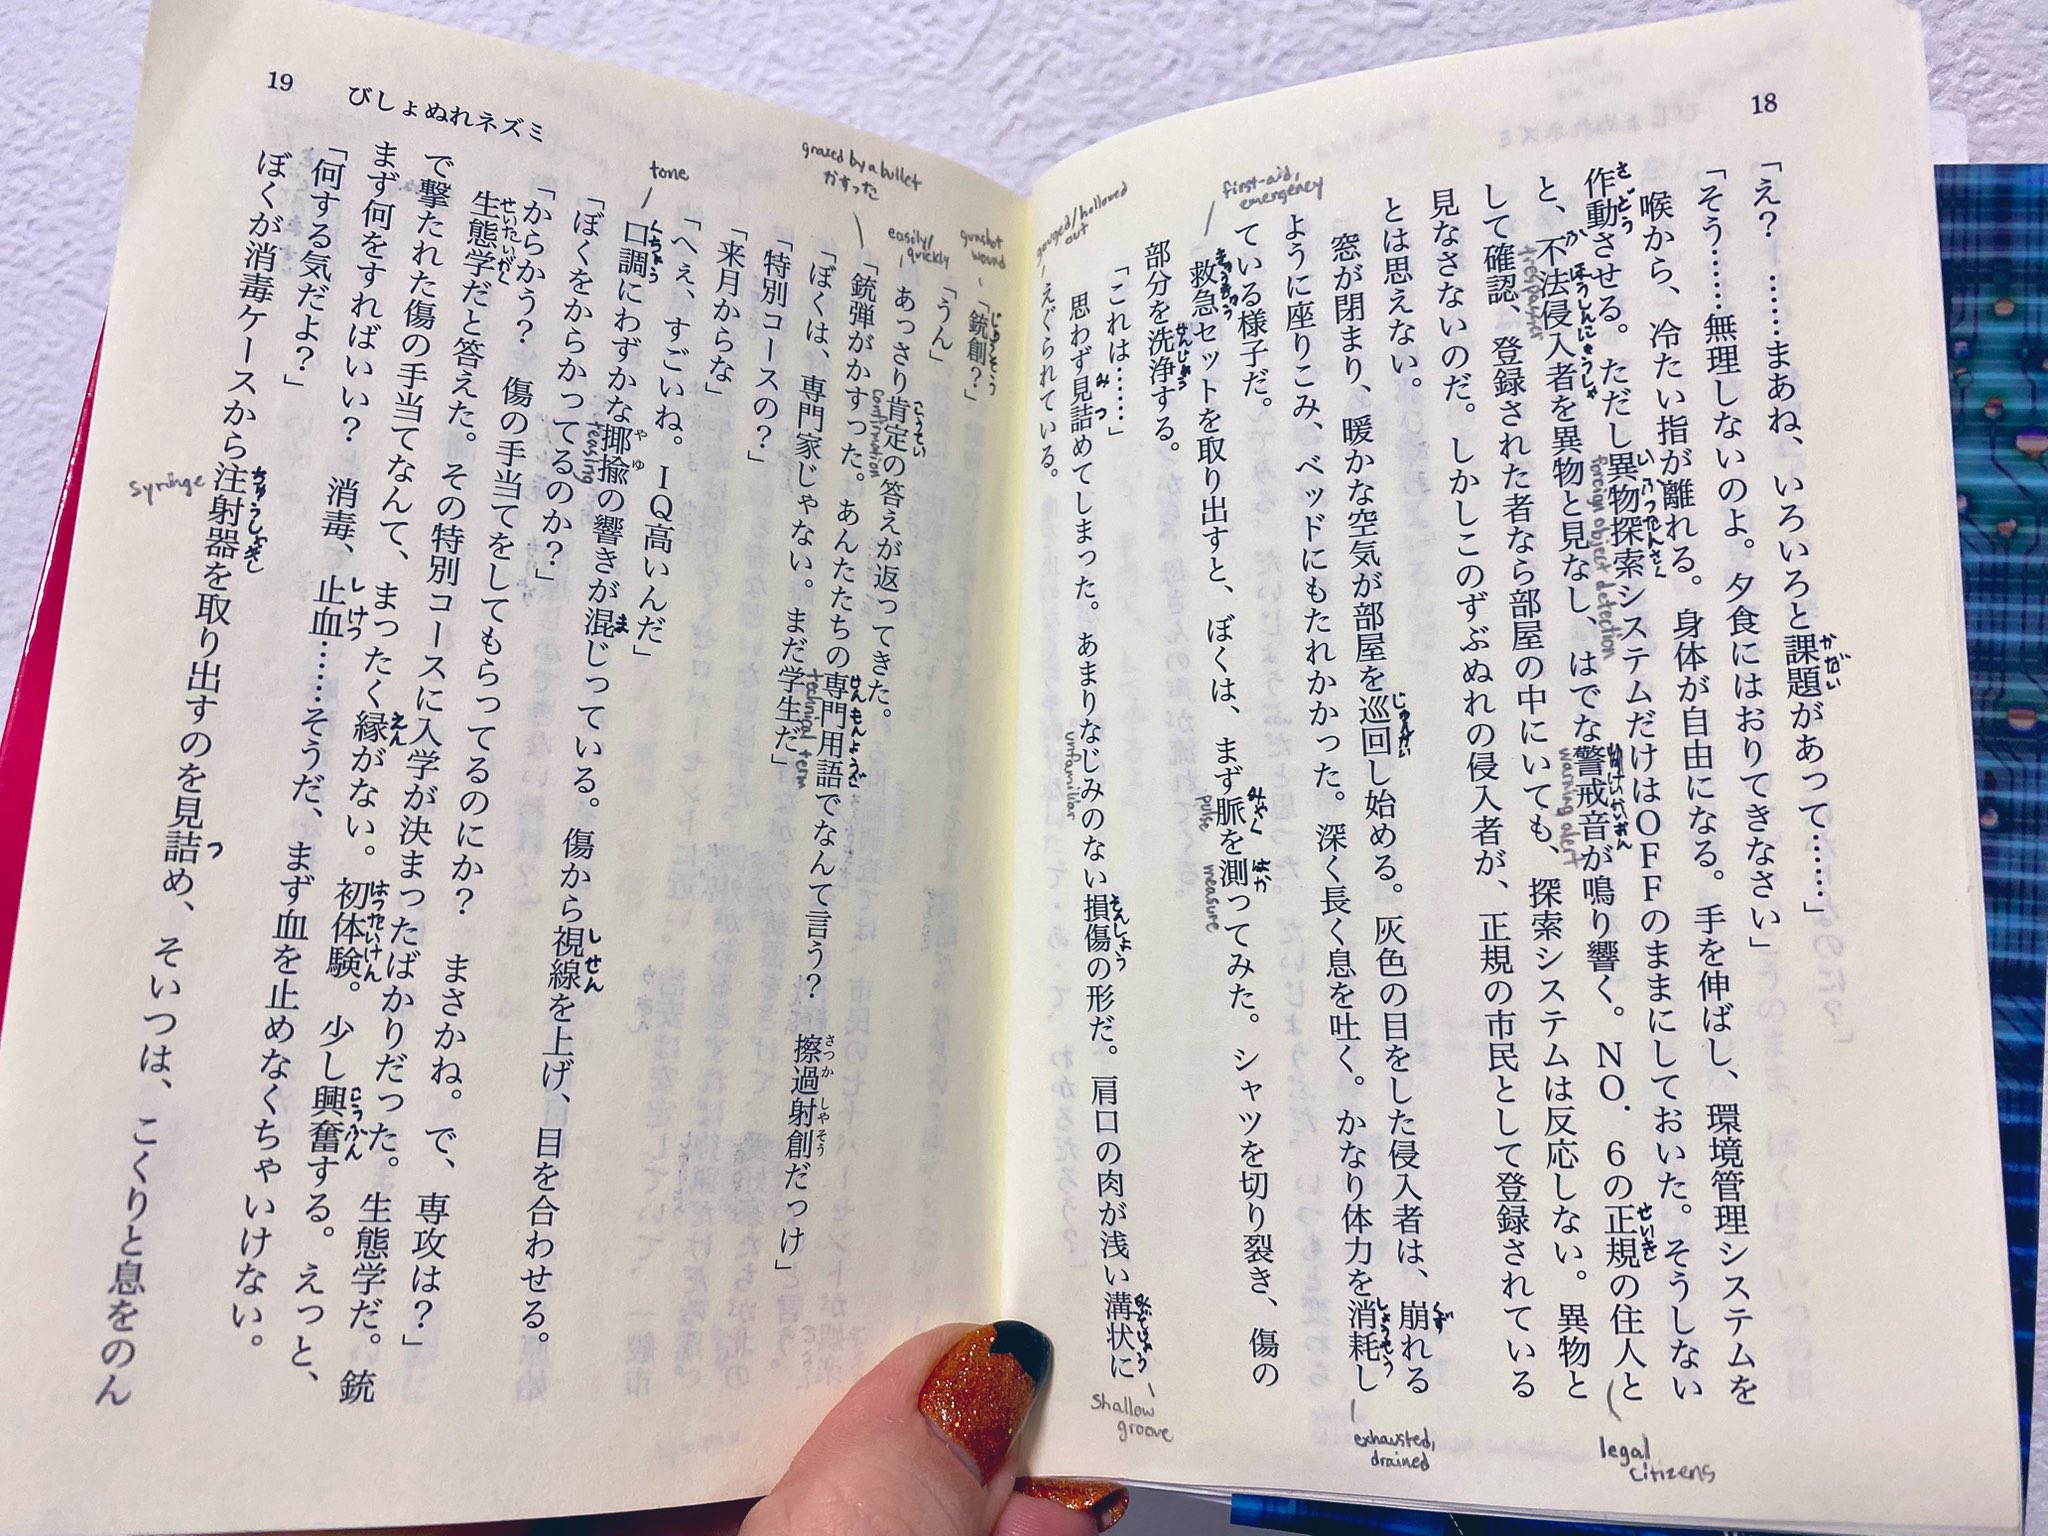 18
「え？　……まあね、いろいろと課題があって……」
「そう……無理しないのよ。夕食にはおりてきなさい」
喉から、冷たい指が離れる。身体が自由になる。手を伸ばし、環境管理システムを
作動させる。ただし異物探索システムだけはOFFのままにしておいた。そうしない
と、不法侵入者を異物と見なし、はでな警戒音が鳴り響く。NO．6の正規の住人と
して確認、登録された者なら部屋の中にいても、探索システムは反応しない。異物と
見なさないのだ。しかしこのずぶぬれの侵入者が、正規の市民として登録されている
とは思えない。
窓が閉まり、暖かな空気が部屋を巡回し始める。灰色の目をした侵入者は、崩れる
ように座りこみ、ベッドにもたれかかった。深く長く息を吐く。かなり体力を消耗し
ている様子だ。
救急セットを取り出すと、ぼくは、まず脈を測ってみた。シャツを切り裂き、傷の
部分を洗浄する。
「これは……」
思わず見詰めてしまった。あまりなじみのない損傷の形だ。肩口の肉が浅い溝状に
えぐられている。
かだい
さどう
いぶつたんさく
foreign object detection
trespasser
けいかいおん
warning alert
せいき
legal citizens
じゅんかい
くず
しょうもう
exhausted, drained
first-aid, emergency
きゅうきゅう
みゃく
pulse
はか
measure
せんじょう
み つ
unfamiliar
そんしょう
shallow groove
gouged/hollowed out
19
びしょぬれネズミ
「銃創？」
「うん」
あっさり肯定の答えが返ってきた。
「銃弾がかすった。あんたたちの専門用語でなんて言う？　擦過射創だっけ」
「ぼくは、専門家じゃない。まだ学生だ」
「特別コースの？」
「来月からな」
「へぇ、すごいね。IQ高いんだ」
口調にわずかな揶揄の響きが混じっている。傷から視線を上げ、目を合わせる。
「ぼくをからかってるのか？」
「からかう？　傷の手当てをしてもらってるのにか？　まさかね。で、専攻は？」
生態学だと答えた。その特別コースに入学が決まったばかりだった。生態学だ。銃
で撃たれた傷の手当てなんて、まったく縁がない。初体験。少し興奮する。えっと、
まず何をすればいい？　消毒、止血……そうだ、まず血を止めなくちゃいけない。
「何する気だよ？」
ぼくが消毒ケースから注射器を取り出すのを見詰め、そいつは、こくりと息をのん
gunshot wound
easily/ quickly
こうてい
confirmation
grazed by a bullet
かすった
せんもんようご
technical term
さつか しやそう
tone
くちょう
やゆ
teasing
ま
しせん
せいたいがく
えん
はつたいけん
こうふん
しけつ
syringe
つ